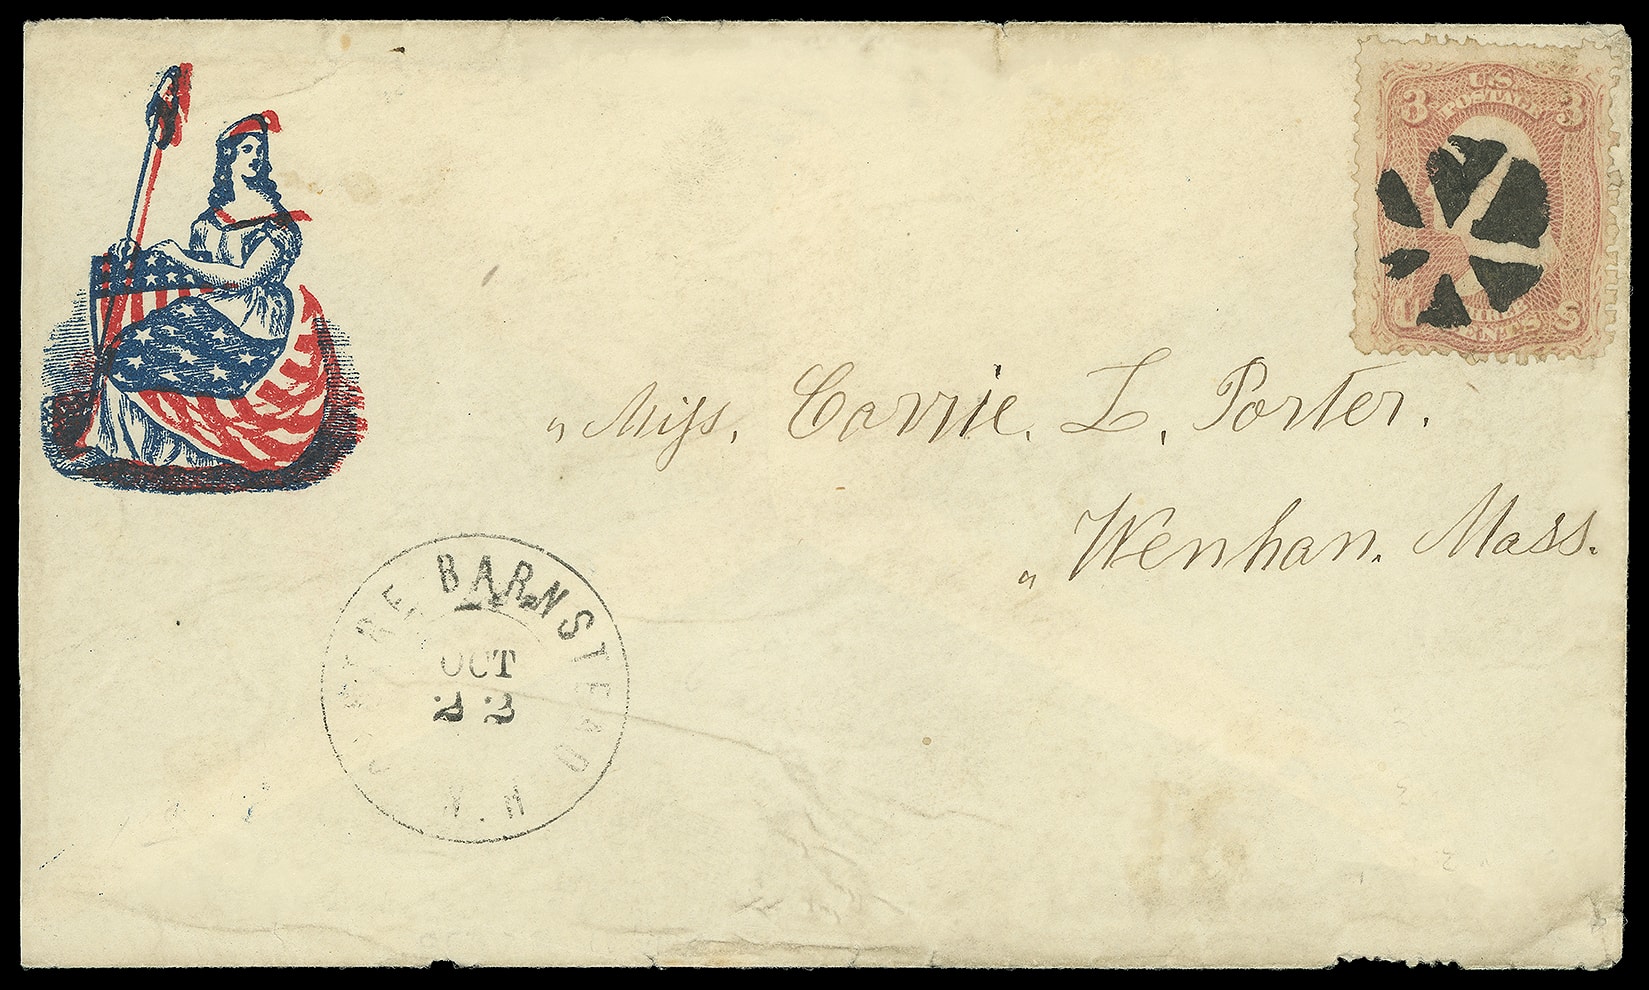 3 U.S. 3
POSTAGE
CENTS
"Miss. Carrie. L. Porter.
"Wenham. Mass.
CENTRE BARNSTEAD
OCT
22
N.H